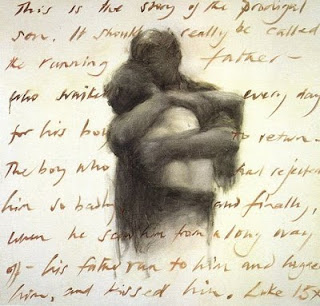 This is the story of the prodigal
son. It should really be called
the running father –
who waited every day
for his boy to return –
The boy who had rejected
him so badly and finally,
when he saw him from a long way
off – his father run to him and hugged
him, and kissed him. Luke 15